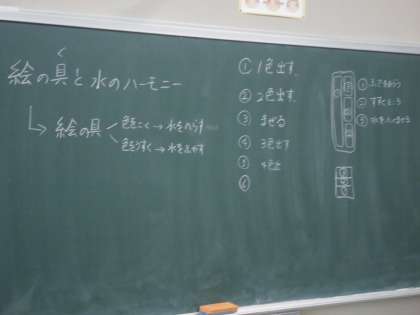 絵の具と水のハーモニー
絵の具
色をこく→水をへらす
色をうすく→水をふやす
① 1色出す
② 2色出す
③ まぜる
④ 3色出す
⑤ 4色出
⑥
①
②
③